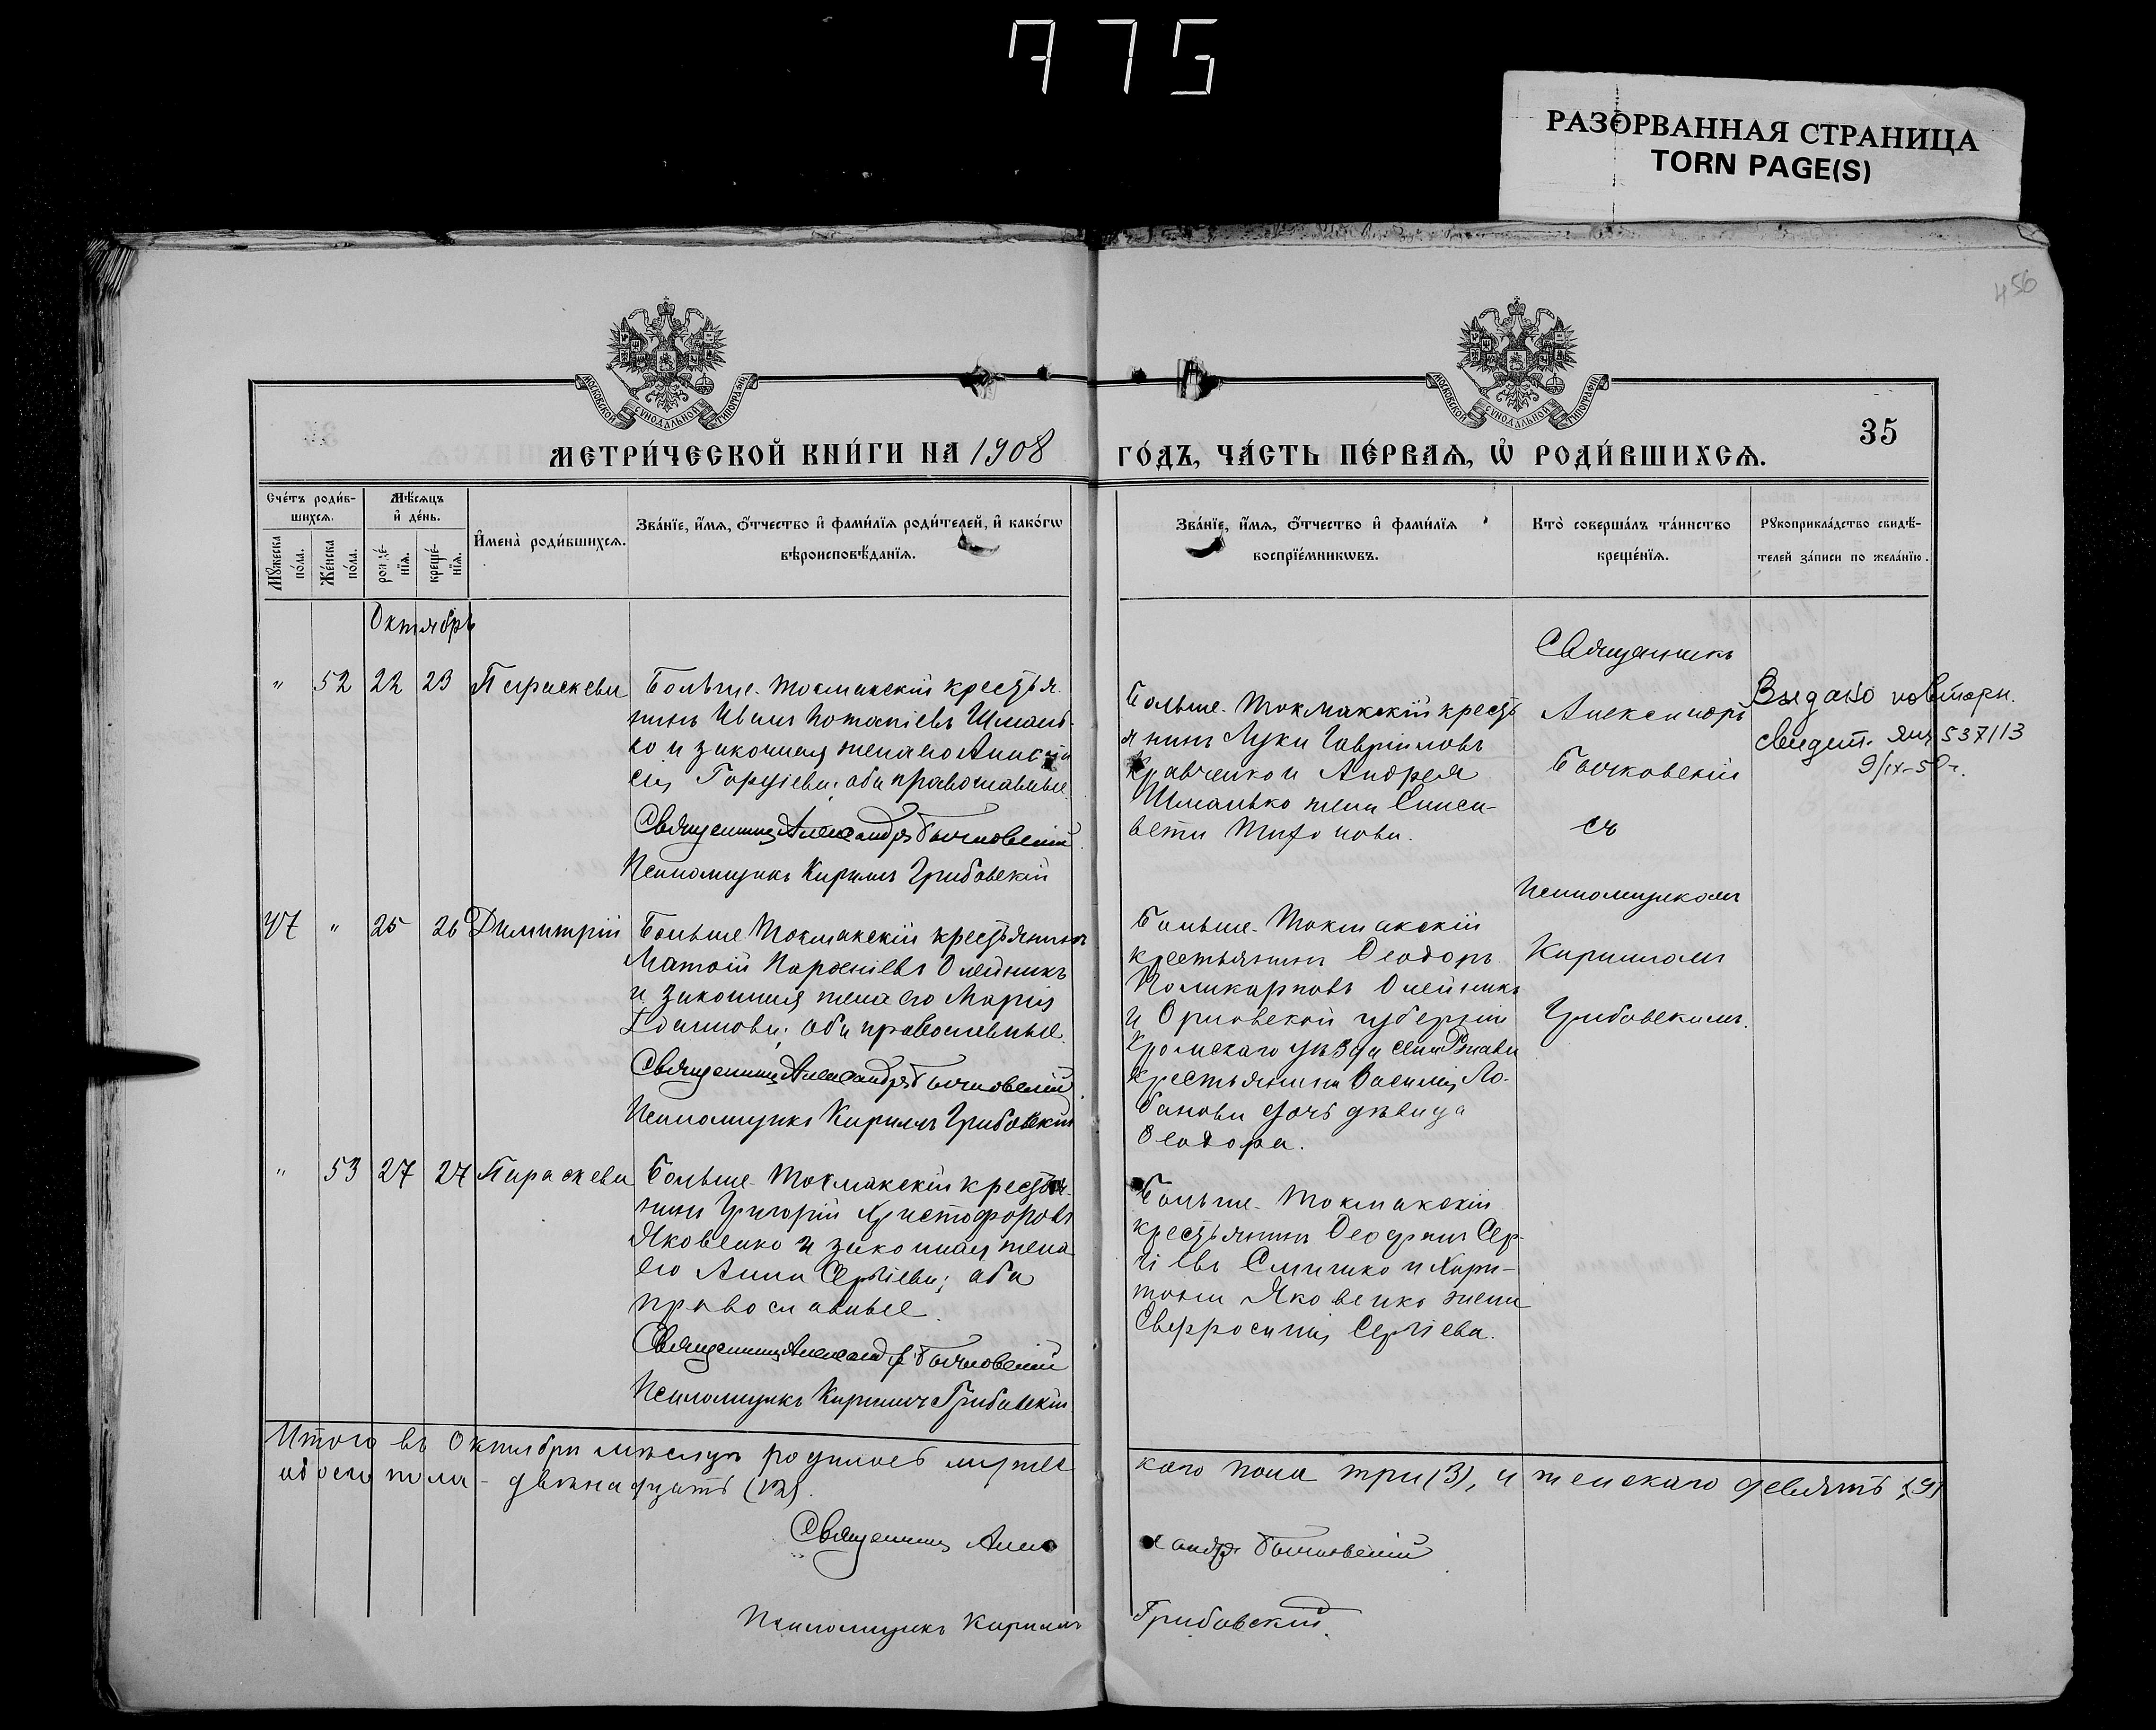 775
РАЗОРВАННАЯ СТРАНИЦА
TORN PAGE(S)
456
МОСКОВСКОЙ СѴНОДАЛЬНОЙ ТИПОГРАФІИ
МОСКОВСКОЙ СѴНОДАЛЬНОЙ ТИПОГРАФІИ
35
МЕТРИ́ЧЕСКОЙ КНИ́ГИ НА 1908 ГО́ДЪ, ЧА́СТЬ ПЕ́РВАѦ, Ѡ҆ РОДИ́ВШИХСѦ.
Сче́тъ роди́в-
шихсѧ.
Мꙋ́жеска по́ла.
Же́нска по́ла.
Мѣ́сѧцъ
и҆ де́нь.
рожде́-
нїѧ.
креще́-
нїѧ.
И҆мена̀ роди́вшихсѧ.
Зва́нїе, и҆́мѧ, ѻ҆́тчество и҆ фами́лїѧ роди́телей, и҆ како́гѡ
вѣроисповѣ́данїѧ.
Зва́нїе, и҆́мѧ, ѻ҆́тчество и҆ фами́лїѧ
воспрїе́мникѡвъ.
Кто̀ соверша́лъ та́инство
креще́нїѧ.
Рꙋкоприкла́дство свидѣ́-
телей за́писи по жела́нїю.
Октябрь
" 52 22 23 Параскева
Больше-Токмакскій крестья-
нинъ Иванъ Потапіевъ Шмань-
ко и законная жена его Анаста-
сія Гордіева; оба православные.
Священникъ Александръ Бычковскій
Псаломщикъ Кириллъ Грибовскій
Больше-Токмакскій кресть
янинъ Лука Гавріиловъ
Кравченко и Андрея
Шманько жена Елиса-
вета Тихонова.
Священникъ
Александръ
Бычковскій
съ
псаломщикомъ
Кирилломъ
Грибовскимъ.
Выдано повторн.
свидет. 537113
9/IX-50г.
47 " 25 26 Димитрій
Больше Токмакскій крестьянинъ
Матѳій Парѳеніевъ Олейникъ
и законная жена его Марія
Іоаннова; оба православные.
Священникъ Александръ Бычковскій
Псаломщикъ Кириллъ Грибовскій
Больше-Токмакскій
крестьянинъ Ѳеодоръ
Поликарповъ Олейникъ
и Орловской губерніи
Кромскаго уѣзда села
крестьянина Василія Ло-
банова дочь дѣвица
Ѳеодора.
" 53 27 27 Параскева
Больше-Токмакскій крестья-
нинъ Григорій Христофоровъ
Яковенко и законная жена
его Анна Сергіева; оба
православные.
Священникъ Александръ Бычковскій
Псаломщикъ Кириллъ Грибовскій.
Больше-Токмакскій
крестьянинъ Сер-
гіевъ и Хари-
тона Яковенко жена
Евфросинія Сергіева.
Итого въ Октябрѣ мѣсяцѣ родилось мужес кого пола три (3), и женскаго девять (9)
обоего пола - двѣнадцать (12).
Священникъ Алек сандръ Бычковскій
Псаломщикъ Кириллъ Грибовскій.